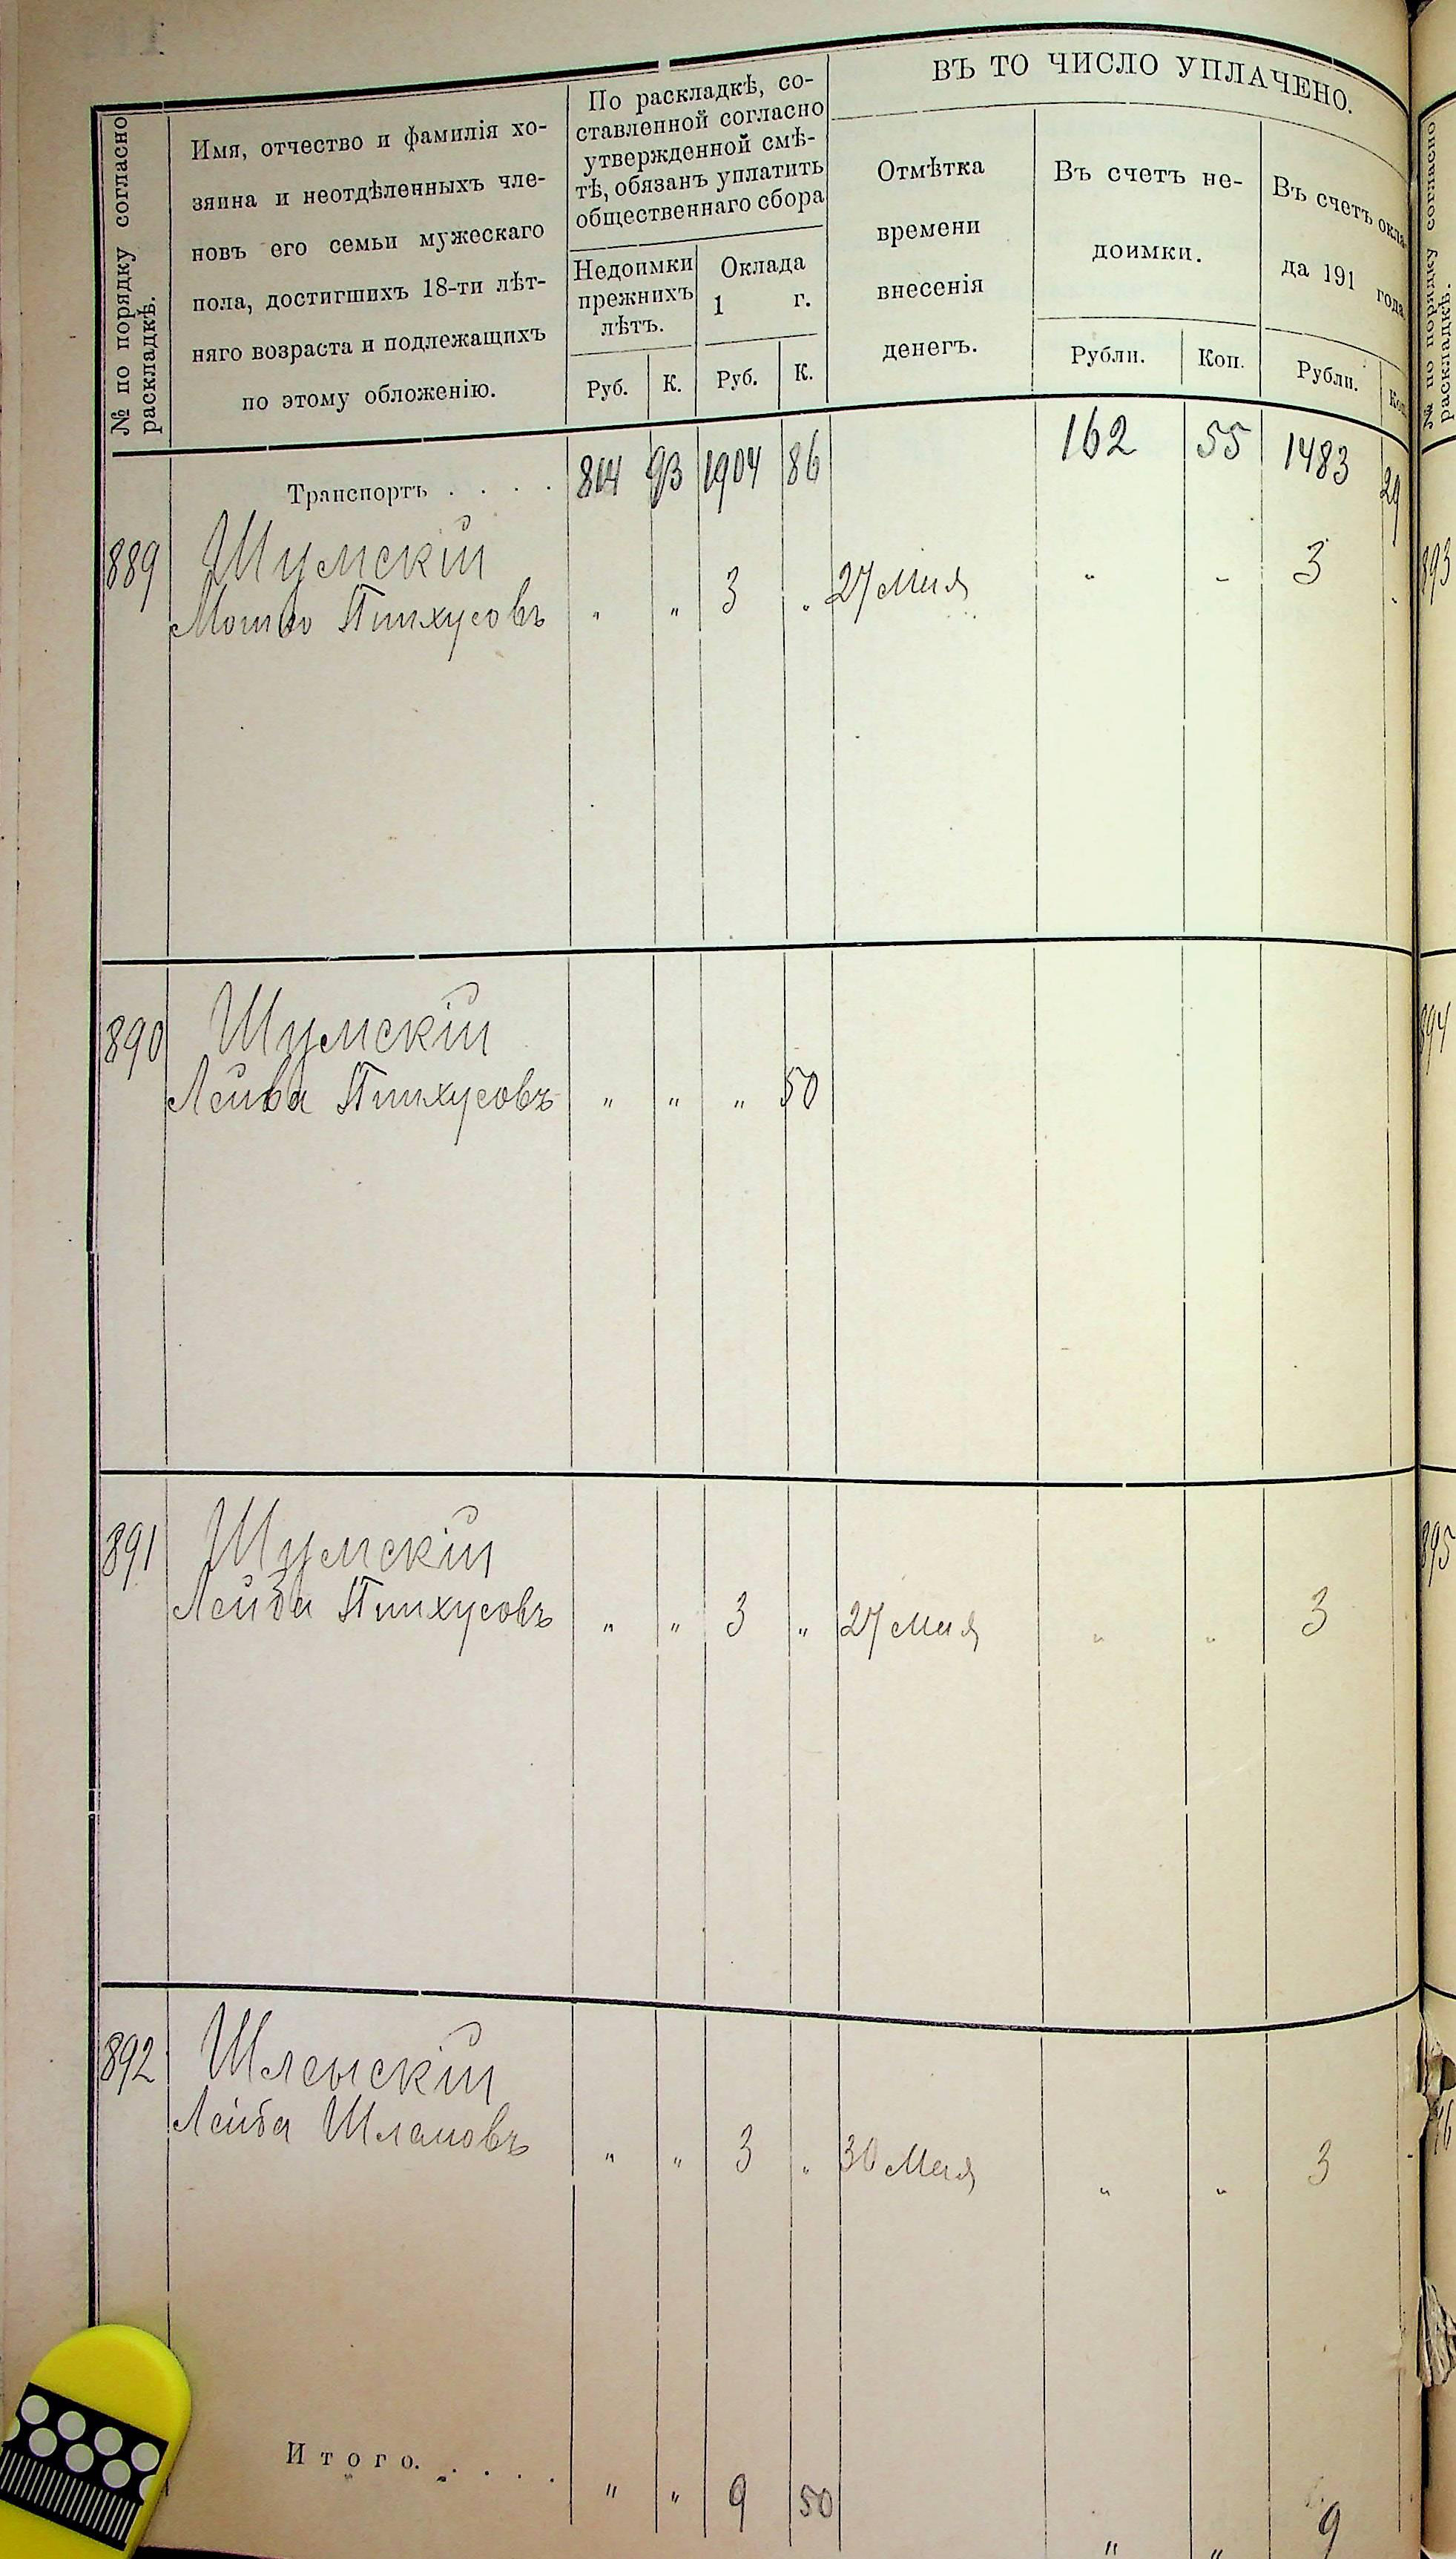 № по порядку согласно
раскладкѣ.
Имя, отчество и фамилія хо-
зяина и неотдѣленныхъ чле-
новъ его семьи мужескаго
пола, достигшихъ 18-ти лѣт-
няго возраста и подлежащихъ
по этому обложенію.
По раскладкѣ, со-
ставленной согласно
утвержденной смѣ-
тѣ, обязанъ уплатить
общественнаго сбора
Недоимки
прежнихъ
лѣтъ.
Оклада
1 г.
Руб. К. Руб. К.
ВЪ ТО ЧИСЛО УПЛАЧЕНО.
Отмѣтка
времени
внесенія
денегъ.
Въ счетъ не-
доимки.
Рубли. Коп.
Въ счетъ окла-
да 191 года
Рубли. Коп.
Транспортъ . . . . 814 93 1904 86 162 55 1483 29
889 Шумскій
Мошко Пинхусовъ " " 3 " 27 Мая " - 3 -
890 Шумскій
Лейва Пинхусовъ " " " 50
891 Шумскій
Лейба Пинхусовъ " " 3 " 27 Мая " " 3
892 Шленскій
Лейба Шламовъ " " 3 " 30 Мая " " 3 -
Итого. . . . . " " 9 50 " " 9
№ по порядку согласно
раскладкѣ.
893
894
895